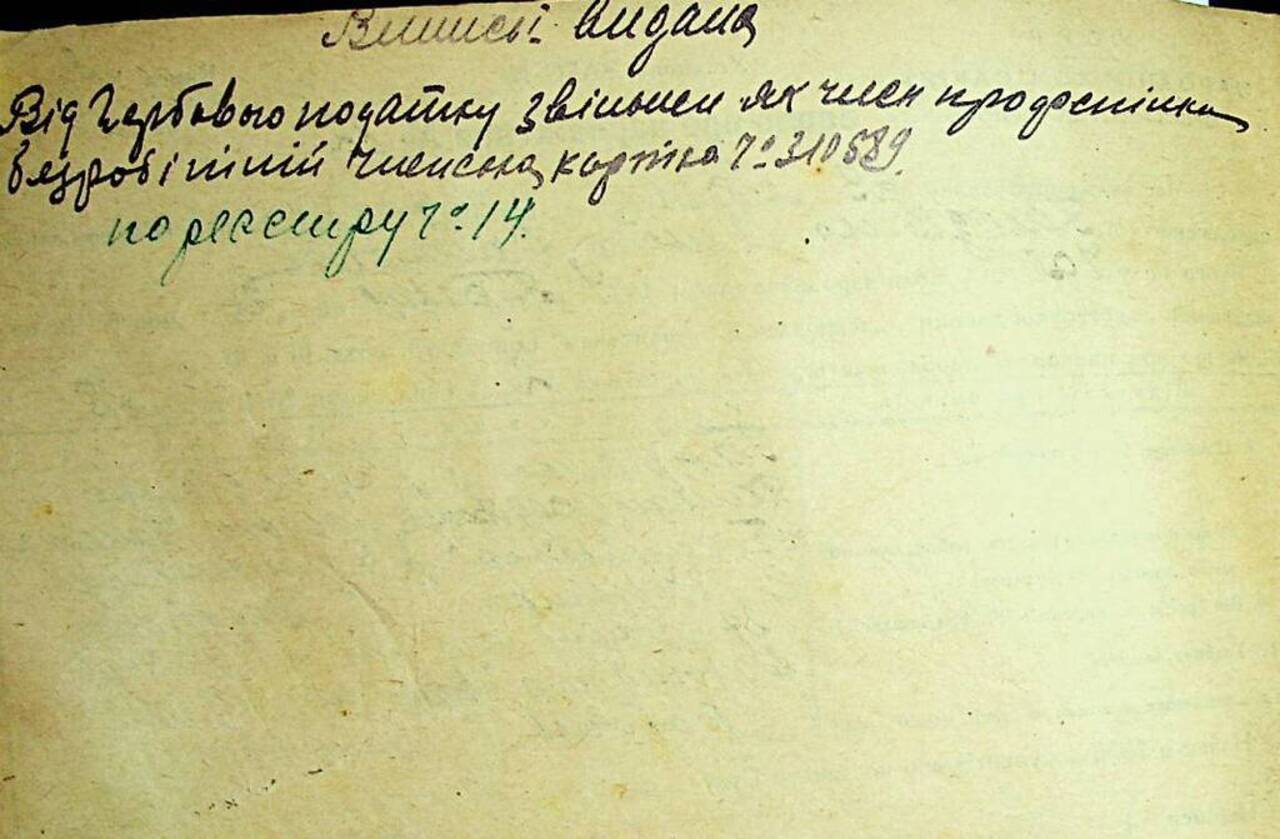 Виписі видана
Від Гербового податку звільнен як член профспілки
безробітній членська картка № 310589.
по реєстру № 14.